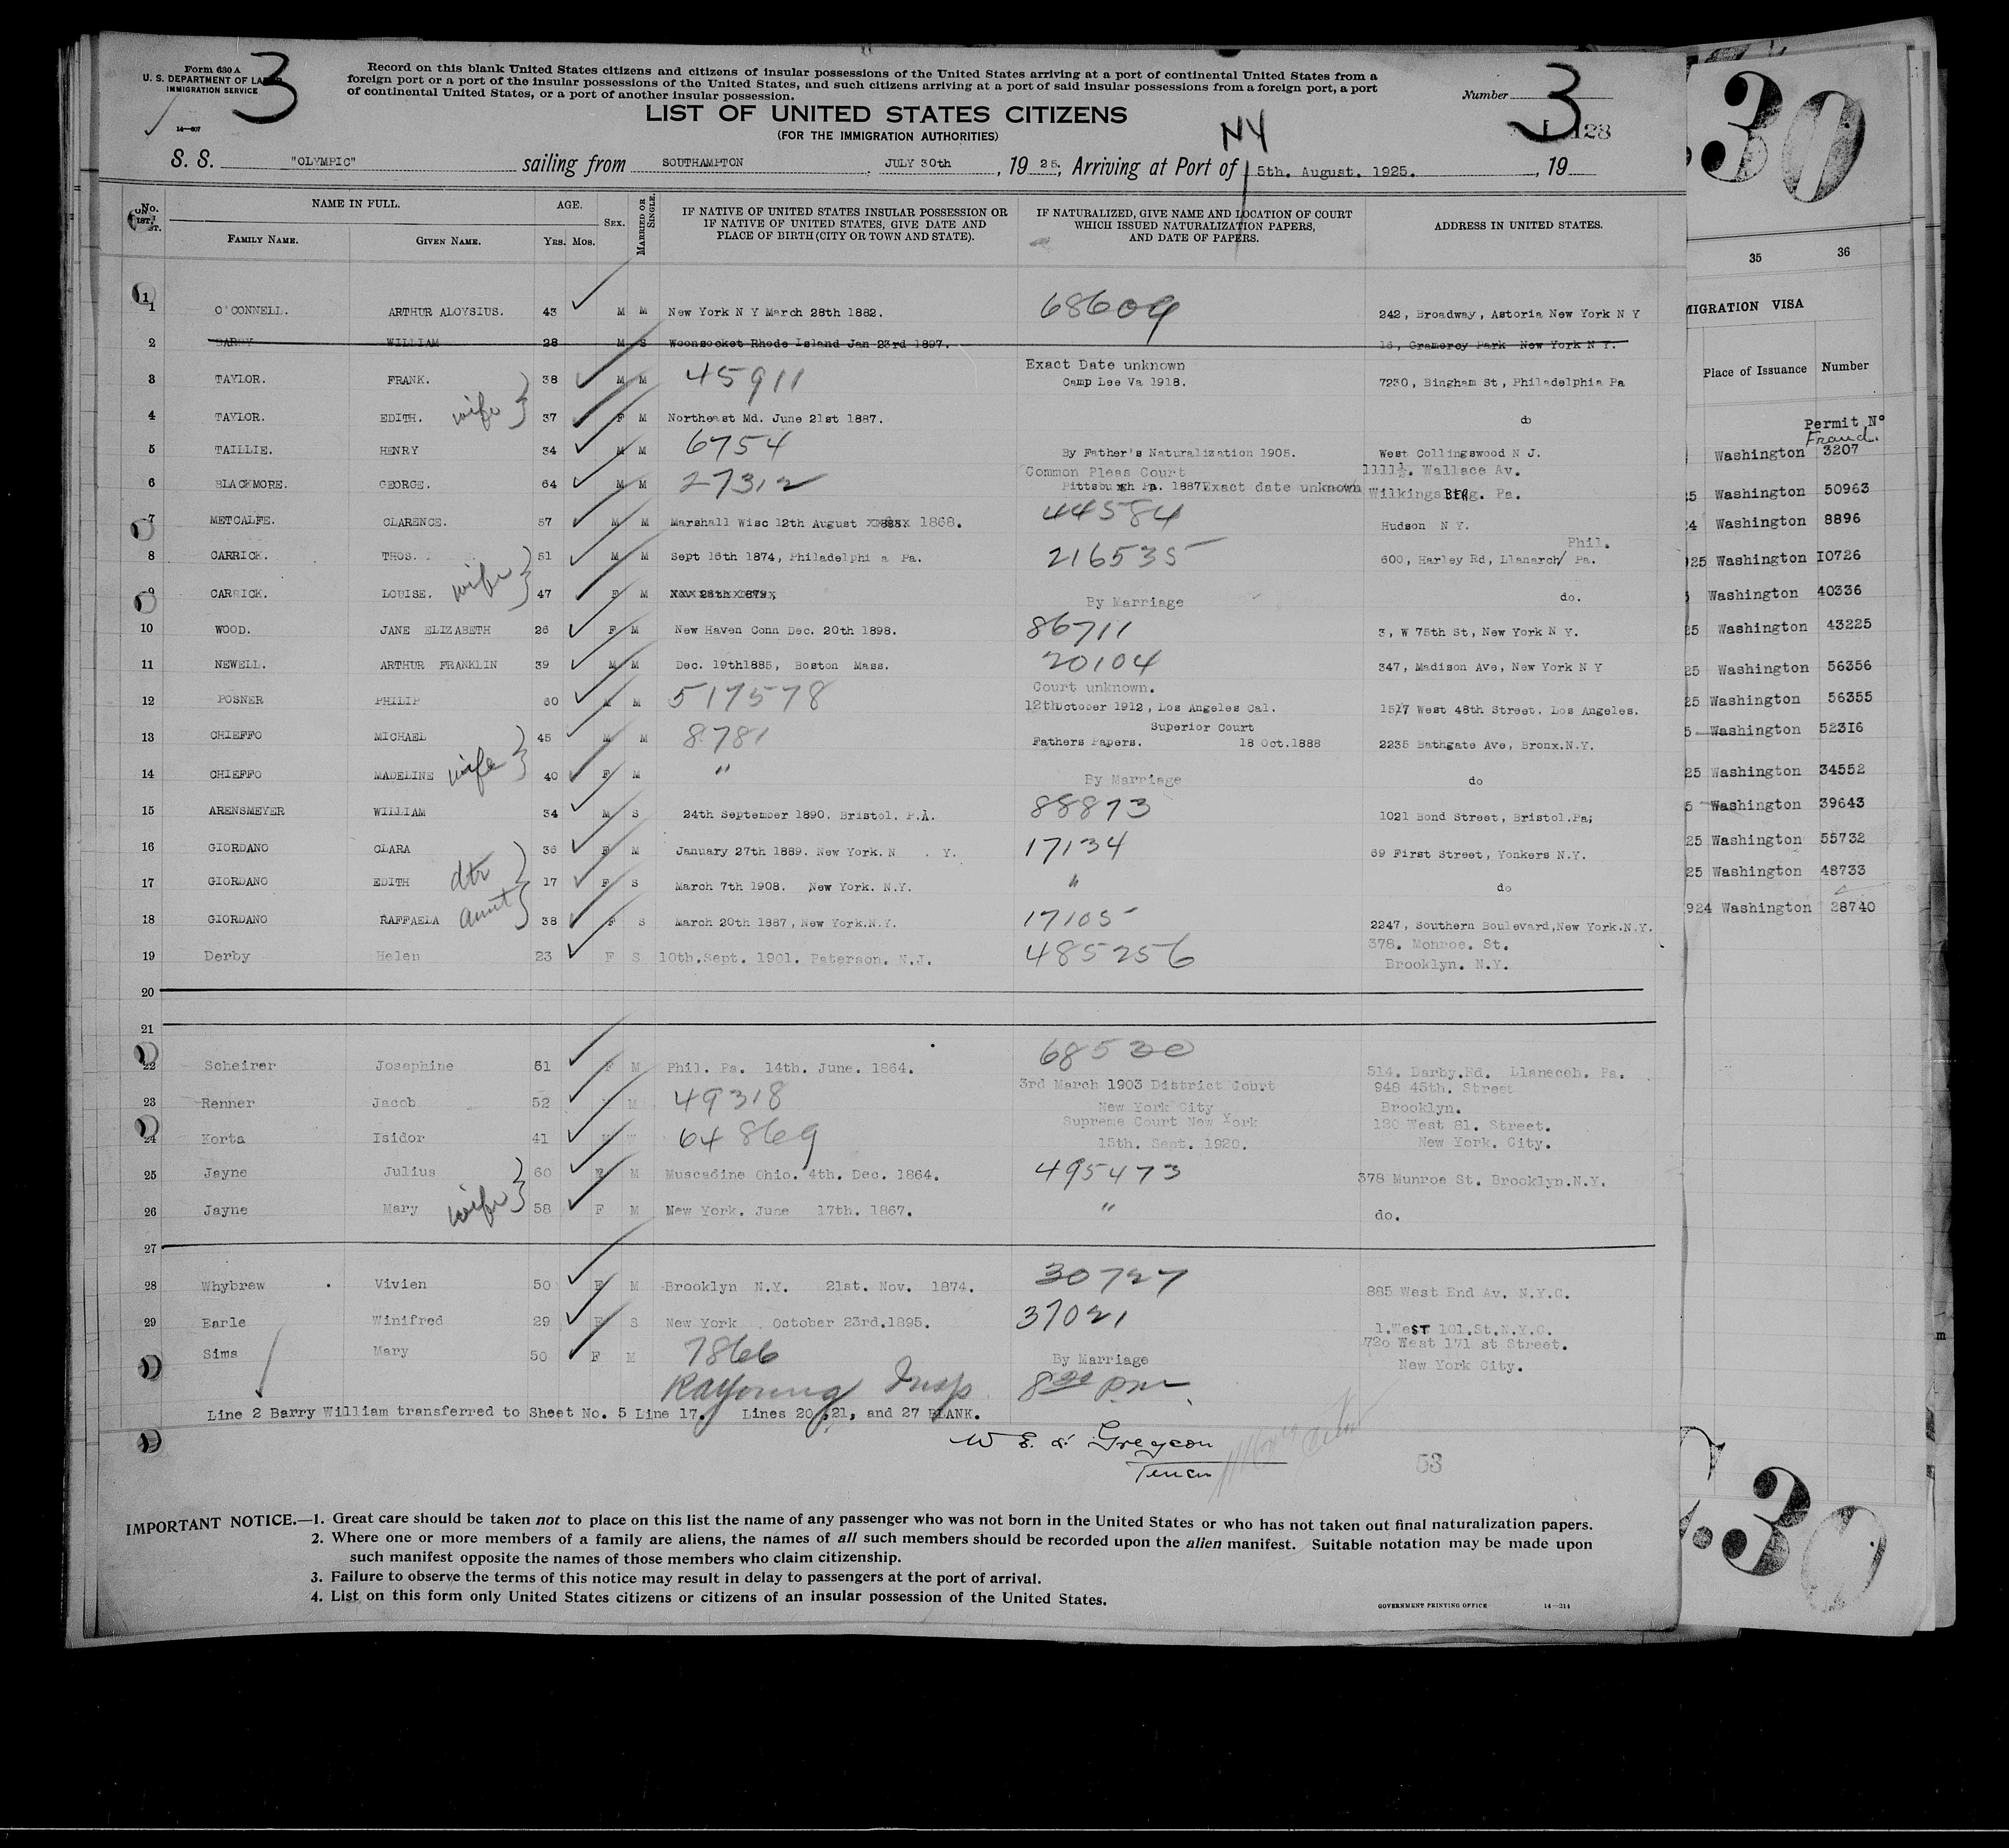 Form 630 A
U. S. DEPARTMENT OF LABOR
IMMIGRATION SERVICE
14—607
3
Record on this blank United States citizens and citizens of insular possessions of the United States arriving at a port of continental United States from a
foreign port or a port of the insular possessions of the United States, and such citizens arriving at a port of said insular possessions from a foreign port, a port
of continental United States, or a port of another insular possession.
Number 3
128
LIST OF UNITED STATES CITIZENS
(FOR THE IMMIGRATION AUTHORITIES)
NY
S. S. "OLYMPIC" sailing from SOUTHAMPTON, JULY 30th, 19 25, Arriving at Port of 5th. August. 1925., 19
No. ON LIST. NAME IN FULL. AGE. SEX. MARRIED OR SINGLE. IF NATIVE OF UNITED STATES INSULAR POSSESSION OR IF NATIVE OF UNITED STATES, GIVE DATE AND PLACE OF BIRTH (CITY OR TOWN AND STATE). IF NATURALIZED, GIVE NAME AND LOCATION OF COURT WHICH ISSUED NATURALIZATION PAPERS, AND DATE OF PAPERS. ADDRESS IN UNITED STATES.
FAMILY NAME. GIVEN NAME. YRS. MOS.
1 O'CONNELL. ARTHUR ALOYSIUS. 43 M M New York N Y March 28th 1882. 68609 242, Broadway, Astoria New York N Y
2 BARRY WILLIAM 28 M S Woonsocket Rhode Island Jan 23rd 1897. 16, Gramercy Park New York N Y.
3 TAYLOR. FRANK. 38 M M 45911 Exact Date unknown Camp Lee Va 1918. 7230, Bingham St, Philadelphia Pa
4 TAYLOR. EDITH. wife 37 F M Northeast Md. June 21st 1887. do
5 TAILLIE. HENRY 34 M M 6754 By Father's Naturalization 1905. West Collingswood N J.
6 BLACKMORE. GEORGE. 64 M M 27312 Common Pleas Court Pittsburgh Pa. 1887 Exact date unknown 1111½. Wallace Av. Wilkingsburg. Pa.
7 METCALFE. CLARENCE. 57 M M Marshall Wisc 12th August 1868. 44584 Hudson N Y.
8 CARRICK. THOS. 51 M M Sept 16th 1874, Philadelphi a Pa. 216535 600, Harley Rd, Llanarch/ Phil. Pa.
9 CARRICK. LOUISE. wife 47 F M By Marriage do.
10 WOOD. JANE ELIZABETH 26 F M New Haven Conn Dec. 20th 1898. 86711 3, W 75th St, New York N Y.
11 NEWELL. ARTHUR FRANKLIN 39 M M Dec. 19th1885, Boston Mass. 20104 347, Madison Ave, New York N Y
12 POSNER PHILIP 60 M M 517578 Court unknown. 12thOctober 1912, Los Angeles Cal. 1517 West 48th Street. Los Angeles.
13 CHIEFFO MICHAEL 45 M M 8781 Fathers Papers. Superior Court 18 Oct.1888 2235 Bathgate Ave, Bronx.N.Y.
14 CHIEFFO MADELINE wife 40 F M " By Marriage do
15 ARENSMEYER WILLIAM 34 M S 24th September 1890. Bristol. P.A. 88873 1021 Bond Street, Bristol.Pa;
16 GIORDANO CLARA 36 F M January 27th 1889. New York. N . Y. 17134 69 First Street, Yonkers N.Y.
17 GIORDANO EDITH dtr 17 F S March 7th 1908. New York. N.Y. " do
18 GIORDANO RAFFAELA aunt 38 F S March 20th 1887, New York.N.Y. 17105 2247, Southern Boulevard,New York.N.Y.
19 Derby Helen 23 F S 10th.Sept. 1901. Paterson. N.J. 485256 378. Monroe. St. Brooklyn. N.Y.
20
21
22 Scheirer Josephine 61 F M Phil. Pa. 14th. June. 1864. 68530 514. Darby.Rd. Llaneceh. Pa.
23 Renner Jacob 52 M 49318 3rd March 1903 District Court New York City 948 45th. Street Brooklyn.
24 Korta Isidor 41 64869 Supreme Court New York 15th. Sept. 1920. 120 West 81. Street. New York. City.
25 Jayne Julius 60 M Muscadine Ohio. 4th. Dec. 1864. 495473 378 Munroe St. Brooklyn.N.Y.
26 Jayne Mary wife 58 F M New York. June 17th. 1867. " do.
27
28 Whybrew Vivien 50 F M Brooklyn N.Y. 21st. Nov. 1874. 30727 885 West End Av. N.Y.C.
29 Earle Winifred 29 F S New York . October 23rd.1895. 37021 1.West 101.St.N.Y.C.
Sims Mary 50 F M 7866 By Marriage 720 West 171 st Street. New York City.
RA Young Insp 8 00 pm
Line 2 Barry William transferred to Sheet No. 5 Line 17. Lines 20,21, and 27 BLANK.
53
IMPORTANT NOTICE.—1. Great care should be taken not to place on this list the name of any passenger who was not born in the United States or who has not taken out final naturalization papers.
2. Where one or more members of a family are aliens, the names of all such members should be recorded upon the alien manifest. Suitable notation may be made upon
such manifest opposite the names of those members who claim citizenship.
3. Failure to observe the terms of this notice may result in delay to passengers at the port of arrival.
4. List on this form only United States citizens or citizens of an insular possession of the United States.
GOVERNMENT PRINTING OFFICE 14—214
30
35 36
MIGRATION VISA
Place of Issuance Number
Permit No
Fraud.
Washington 3207
25 Washington 50963
24 Washington 8896
925 Washington 10726
Washington 40336
25 Washington 43225
25 Washington 56356
25 Washington 56355
5 Washington 52316
25 Washington 34552
5 Washington 39643
25 Washington 55732
25 Washington 48733
924 Washington 28740
30